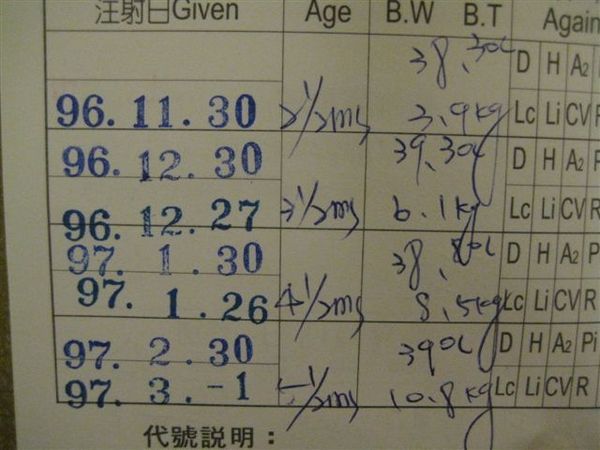 注射日Given Age B.W B.T Again
38.3°C D H A2
96.11.30 2 1/2ms 3.9kg Lc Li CV R
96.12.30 39.3°C D H A2 P
96.12.27 3 1/2ms 6.1kg Lc Li CV R
97.1.30 38.8°C D H A2 P
97.1.26 4 1/2ms 8.5kg Lc Li CV R
97.2.30 39°C D H A2 Pi
97.3.-1 1/2ms 10.8kg Lc Li CV R
代號説明：